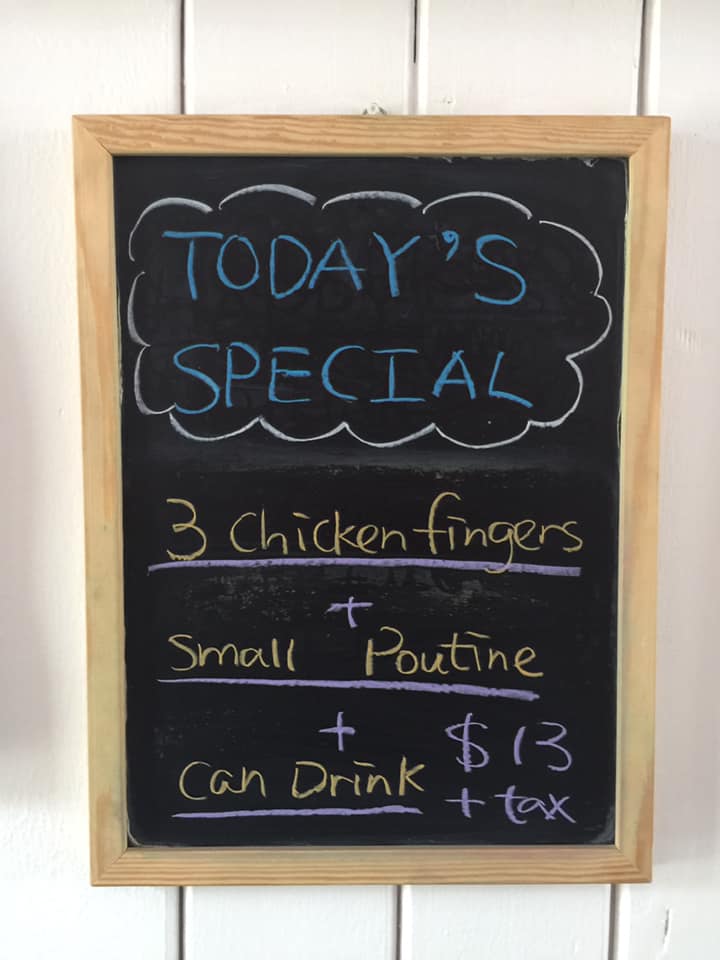 TODAY'S
SPECIAL
3 Chicken fingers
+
Small Poutine
+
Can Drink $13
+ tax